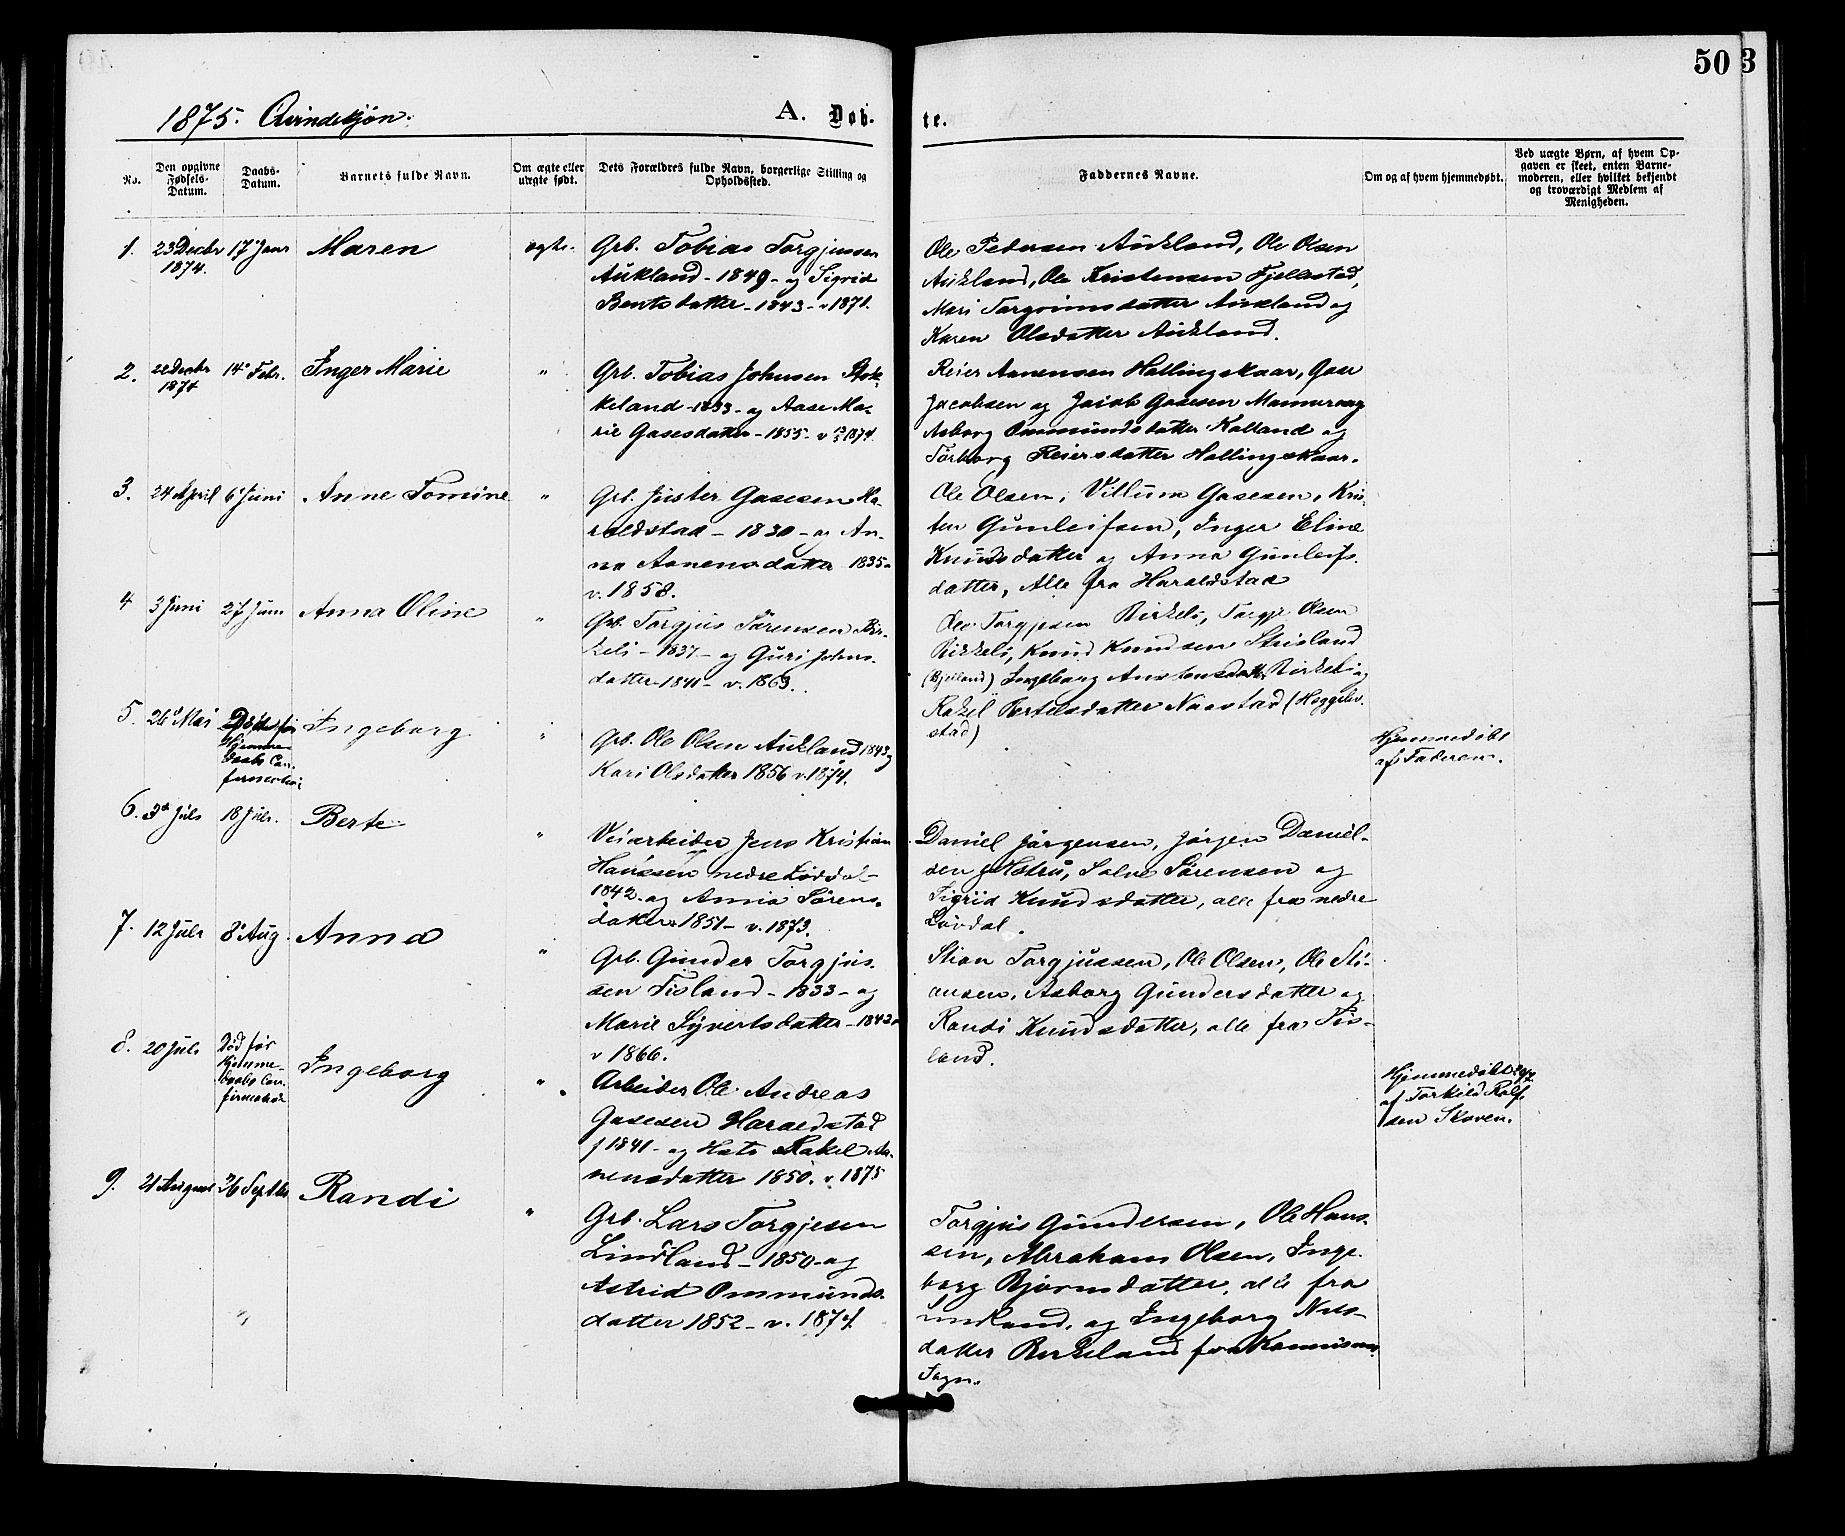 50 3
1875. Qvindekjøn.
A. Døb-
te.
No.
Den opgivne
Fødsels-
Datum.
Daabs-
Datum.
Barnets fulde Navn.
Om ægte eller
uægte født.
Dets Forældres fulde Navn, borgerlige Stilling og
Opholdssted.
Faddernes Navne.
Om og af hvem hjemmedøbt.
Ved uægte Børn, af hvem Op-
gaven er skeet, enten Barne-
moderen, eller hvilket bekjendt
og troværdigt Medlem af
Menigheden.
1. 23 Decbr 17 Janr Maren ægte.
1874.
Grb. Tobias Torgjussen
Aukland - 1849 - og Sigrid
Bentsdatter - 1843 - v 1871.
Ole Pedersen Aukland, Ole Olsen
Aukland, Ole Kristensen Fjellestad,
Mari Torgrimsdatter Aukland og
Karen Olsdatter Aukland.
2. 22 Decbr 14 Febr. Inger Marie "
1874
Grb. Tobias Johnsen Stok-
keland - 1833 - og Aase Ma-
rie Gasesdatter - 1855 - v 1874.
Reier Aanensen Hallingskaar, Gase
Jacobsen og Jacob Gasesen
Asborg Ommundsdatter Kalland og
Torborg Reiersdatter Hallingskaar.
3. 24 April 6 Juni Anne Tomine "
Grb. Juster Gasesen Ha-
raldstad - 1830 - og An-
na Aanensdatter - 1835 -
v. 1858.
Ole Olsen, Villum Gasesen, Kris-
ten Gunleifsen, Inger Eline
Knudsdatter og Anna Gunleifs-
datter, Alle fra Haraldstad
4 3 Juni 27 Juni Anna Oline "
Grb. Torgjus Sørensen Bir-
keli - 1837 - og Guri Johns-
datter - 1841 - v. 1863.
Ole Torgjesen Birkeli, Torgje Olsen
Birkeli, Knud Knudsen Skisland
(Bjelland) Ingeborg Birkeli og
Rakel Bertelsdatter Naastad (Heggeb-
stad)
5. 26 Mai Død før Ingeborg "
Hjemme-
daabs Con-
firmation
Grb. Ole Olsen Aukland 1843 og
Kari Olsdatter 1856 v. 1874.
Hjemmedøbt
af Faderen.
6. 3 Juli 18 Juli. Berte "
Veiarbeider Jens Kristian
Hanssen nedre Løvdal -
1842 - og Anna Sørens-
datter 1851 - v. 1873.
Daniel Jørgensen, Jørgen Daniel-
sen og Hustru, Salve Sørensen og
Sigrid Knudsdatter, alle fra nedre
Løvdal.
7. 12 Juli 8 Aug. Anna "
Grb. Gunder Torgjus-
sen Fisland - 1833 - og
Marie Syvertsdatter - 1842 -
v 1866.
Stian Torgjussen, Ole Olsen, Ole Sti-
ansen, Asborg Gundersdatter og
Randi Knudsdatter, alle fra Fis-
land.
8. 20 Juli Død før Ingeborg "
Hjemme-
daabs Con-
firmation
Arbeider Ole Andreas
Gasesen Haraldstad
f 1841 - og Hustr Rakel Aa-
nensdatter 1850. v. 1875
Hjemmedøbt
af Torkild Rolf-
sen Skoven.
9. 21 August 26 Septbr Randi "
Grb. Lars Torgjesen
Lindland - 1850 - og
Astrid Ommunds-
datter 1852 - v. 1874.
Torgjus Gundersen, Ole Hans-
sen, Abraham Olsen, Inge-
borg Bjørnsdatter, alle fra
Lindland, og Ingeborg Nils-
datter Birkeland fra
Sogn.